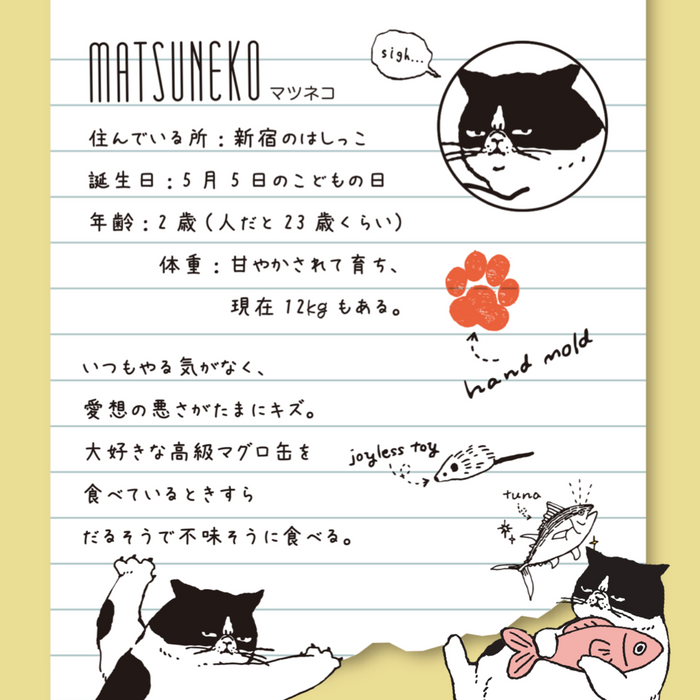 MATSUNEKO マツネコ
sigh...
住んでいる所：新宿のはしっこ
誕生日：5月5日のこどもの日
年齢：2歳（人だと23歳くらい）
体重：甘やかされて育ち、
現在12kgもある。
hand mold
いつもやる気がなく、
愛想の悪さがたまにキズ。
大好きな高級マグロ缶を
joyless toy
食べているときすら
tuna
だるそうで不味そうに食べる。